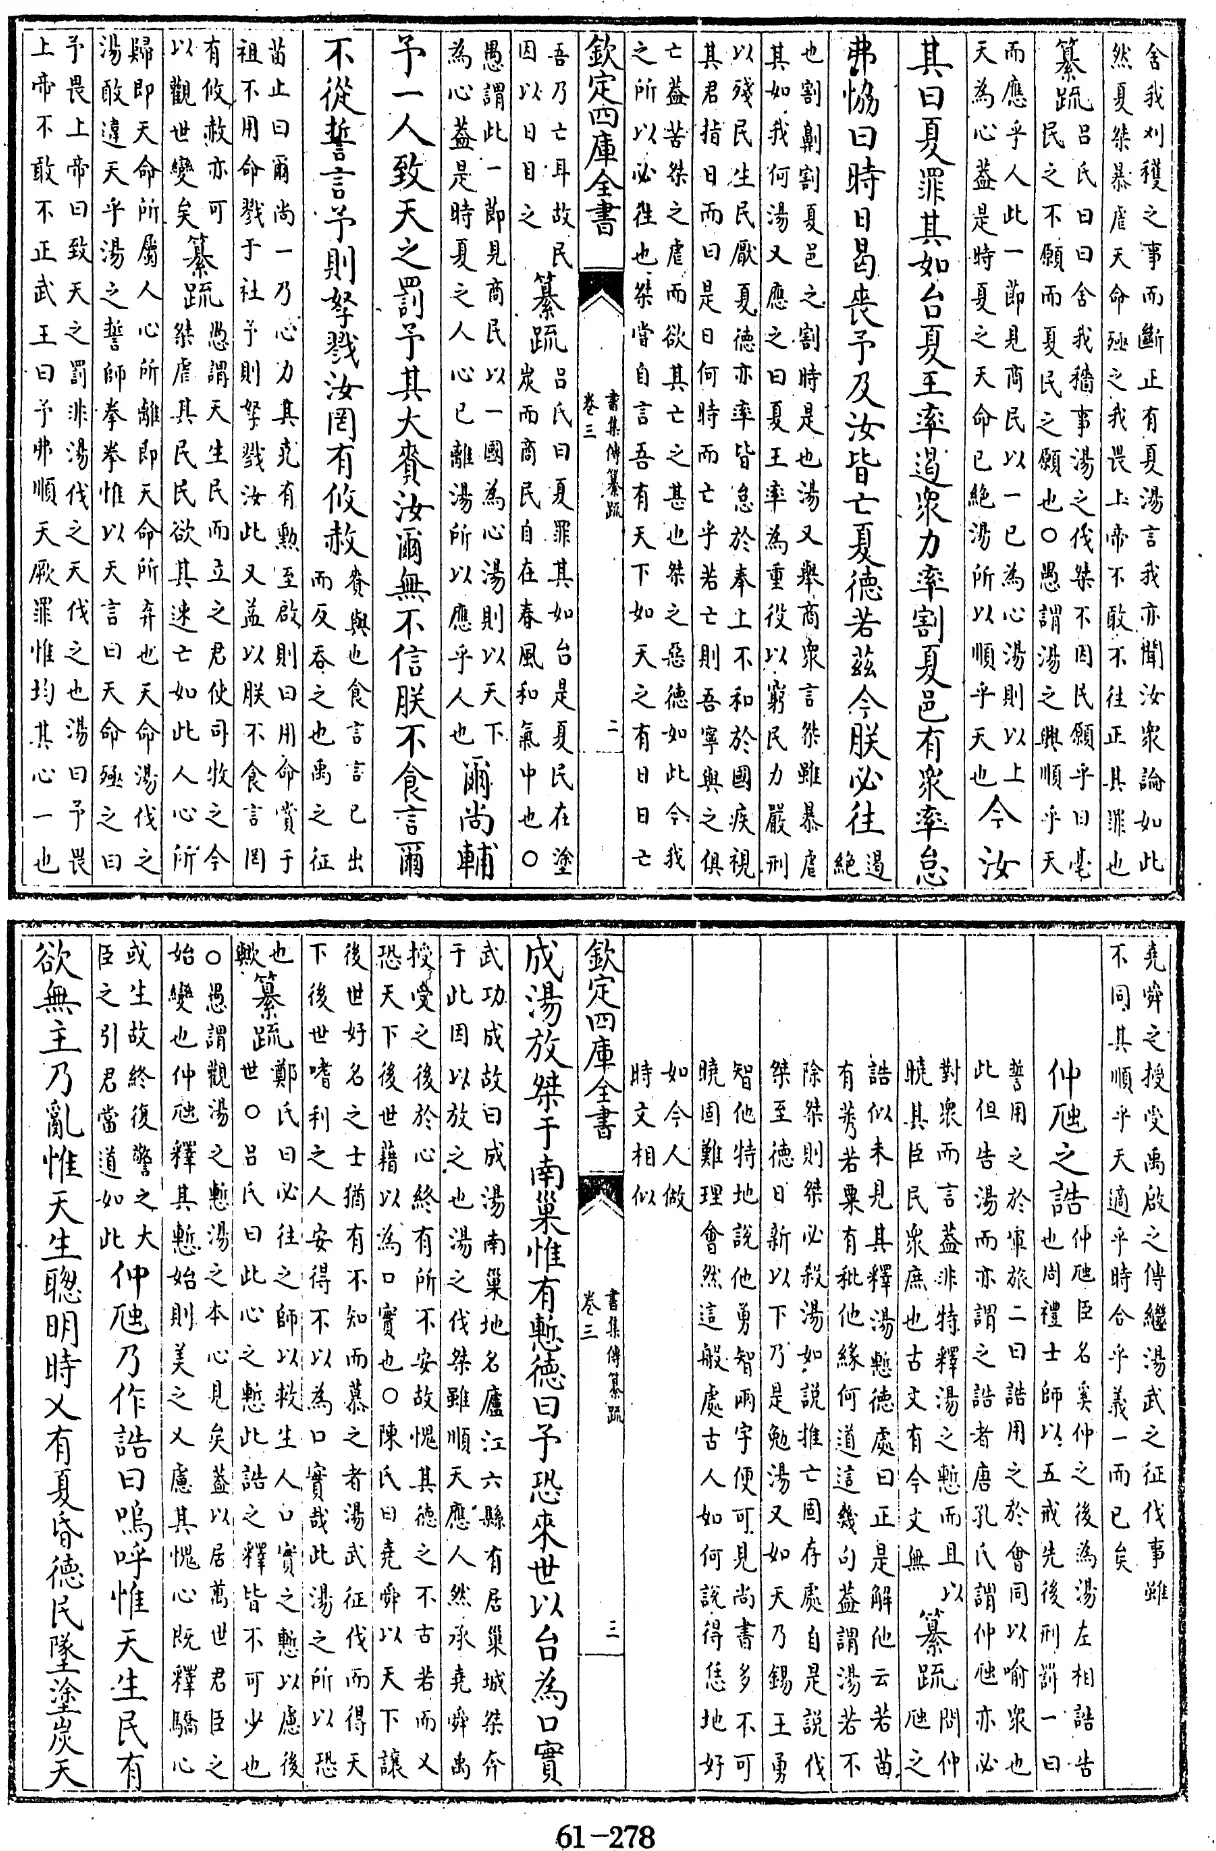 舍我刈穫之事而斷正有夏湯言我亦聞汝衆論如此
然夏桀暴虐天命殛之我畏上帝不敢不往正其罪也
纂疏 吕氏曰曰舍我穡事湯之伐桀不因民願乎曰亳
民之不願而夏民之願也○愚謂湯之興順乎天
而應乎人此一節見商民以一已為心湯則以上
天為心蓋是時夏之天命已絶湯所以順乎天也 今汝
其曰夏罪其如台夏王率遏衆力率割夏邑有衆率怠
弗恊曰時日曷喪予及汝皆亡夏德若茲今朕必往 遏
絶
也割劓割夏邑之割時是也湯又舉商衆言桀雖暴虐
其如我何湯又應之曰夏王率為重役以窮民力嚴刑
以殘民生民厭夏德亦率皆怠於奉上不和於國疾視
其君指日而曰是日何時而亡乎若亡則吾寧與之俱
亡蓋苦桀之虐而欲其亡之甚也桀之惡德如此今我
之所以必徃也桀嘗自言吾有天下如天之有日日亡
欽定四庫全書
書集傳纂疏
卷三
二
吾乃亡耳故民
因以日目之 纂疏 吕氏曰夏罪其如台是夏民在塗
炭而商民自在春風和氣中也○
愚謂此一節見商民以一國為心湯則以天下
為心蓋是時夏之人心已離湯所以應乎人也 爾尚輔
予一人致天之罰予其大賚汝爾無不信朕不食言爾
不從誓言予則孥戮汝罔有攸赦 賚與也食言言已出
而反吞之也禹之征
苗止曰爾尚一乃心力其克有勲至啟則曰用命賞于
祖不用命戮于社予則孥戮汝此又益以朕不食言罔
有攸赦亦可
以觀世變矣 纂疏 愚謂天生民而立之君使司牧之今
桀虐其民民欲其速亡如此人心所
歸即天命所屬人心所離即天命所弃也天命湯伐之
湯敢違天乎湯之誓師拳拳惟以天言曰天命殛之曰
予畏上帝曰致天之罰非湯伐之天伐之也湯曰予畏
上帝不敢不正武王曰予弗順天厥罪惟均其心一也
堯舜之授受禹啟之傳繼湯武之征伐事雖
不同其順乎天適乎時合乎義一而已矣
仲虺之誥 仲虺臣名奚仲之後為湯左相誥告
也周禮士師以五戒先後刑罰一曰
誓用之於軍旅二曰誥用之於會同以喻衆也
此但告湯而亦謂之誥者唐孔氏謂仲虺亦必
對衆而言蓋非特釋湯之慙而且以
曉其臣民衆庶也古文有今文無 纂疏 問仲
虺之
誥似未見其釋湯慙德處曰正是解他云若苗
有莠若粟有秕他緣何道這幾句蓋謂湯若不
除桀則桀必殺湯如說推亡固存處自是說伐
桀至德日新以下乃是勉湯又如天乃錫王勇
智他特地說他勇智兩字便可見尚書多不可
曉固難理會然這般處古人如何說得恁地好
如今人做
時文相似
欽定四庫全書
書集傳纂疏
卷三
三
成湯放桀于南巢惟有慙德曰予恐來世以台為口實
武功成故曰成湯南巢地名廬江六縣有居巢城桀奔
于此因以放之也湯之伐桀雖順天應人然承堯舜禹
授受之後於心終有所不安故愧其德之不古若而又
恐天下後世藉以為口實也○陳氏曰堯舜以天下讓
後世好名之士猶有不知而慕之者湯武征伐而得天
下後世嗜利之人安得不以為口實哉此湯之所以恐
也
歟 纂疏 鄭氏曰必往之師以救生人口實之慙以慮後
世○吕氏曰此心之慙此誥之釋皆不可少也
○愚謂觀湯之慙湯之本心見矣蓋以居萬世君臣之
始變也仲虺釋其慙始則美之又慮其愧心既釋驕心
或生故終復警之大
臣之引君當道如此 仲虺乃作誥曰嗚呼惟天生民有
欲無主乃亂惟天生聰明時乂有夏昏德民墜塗炭天
61-278